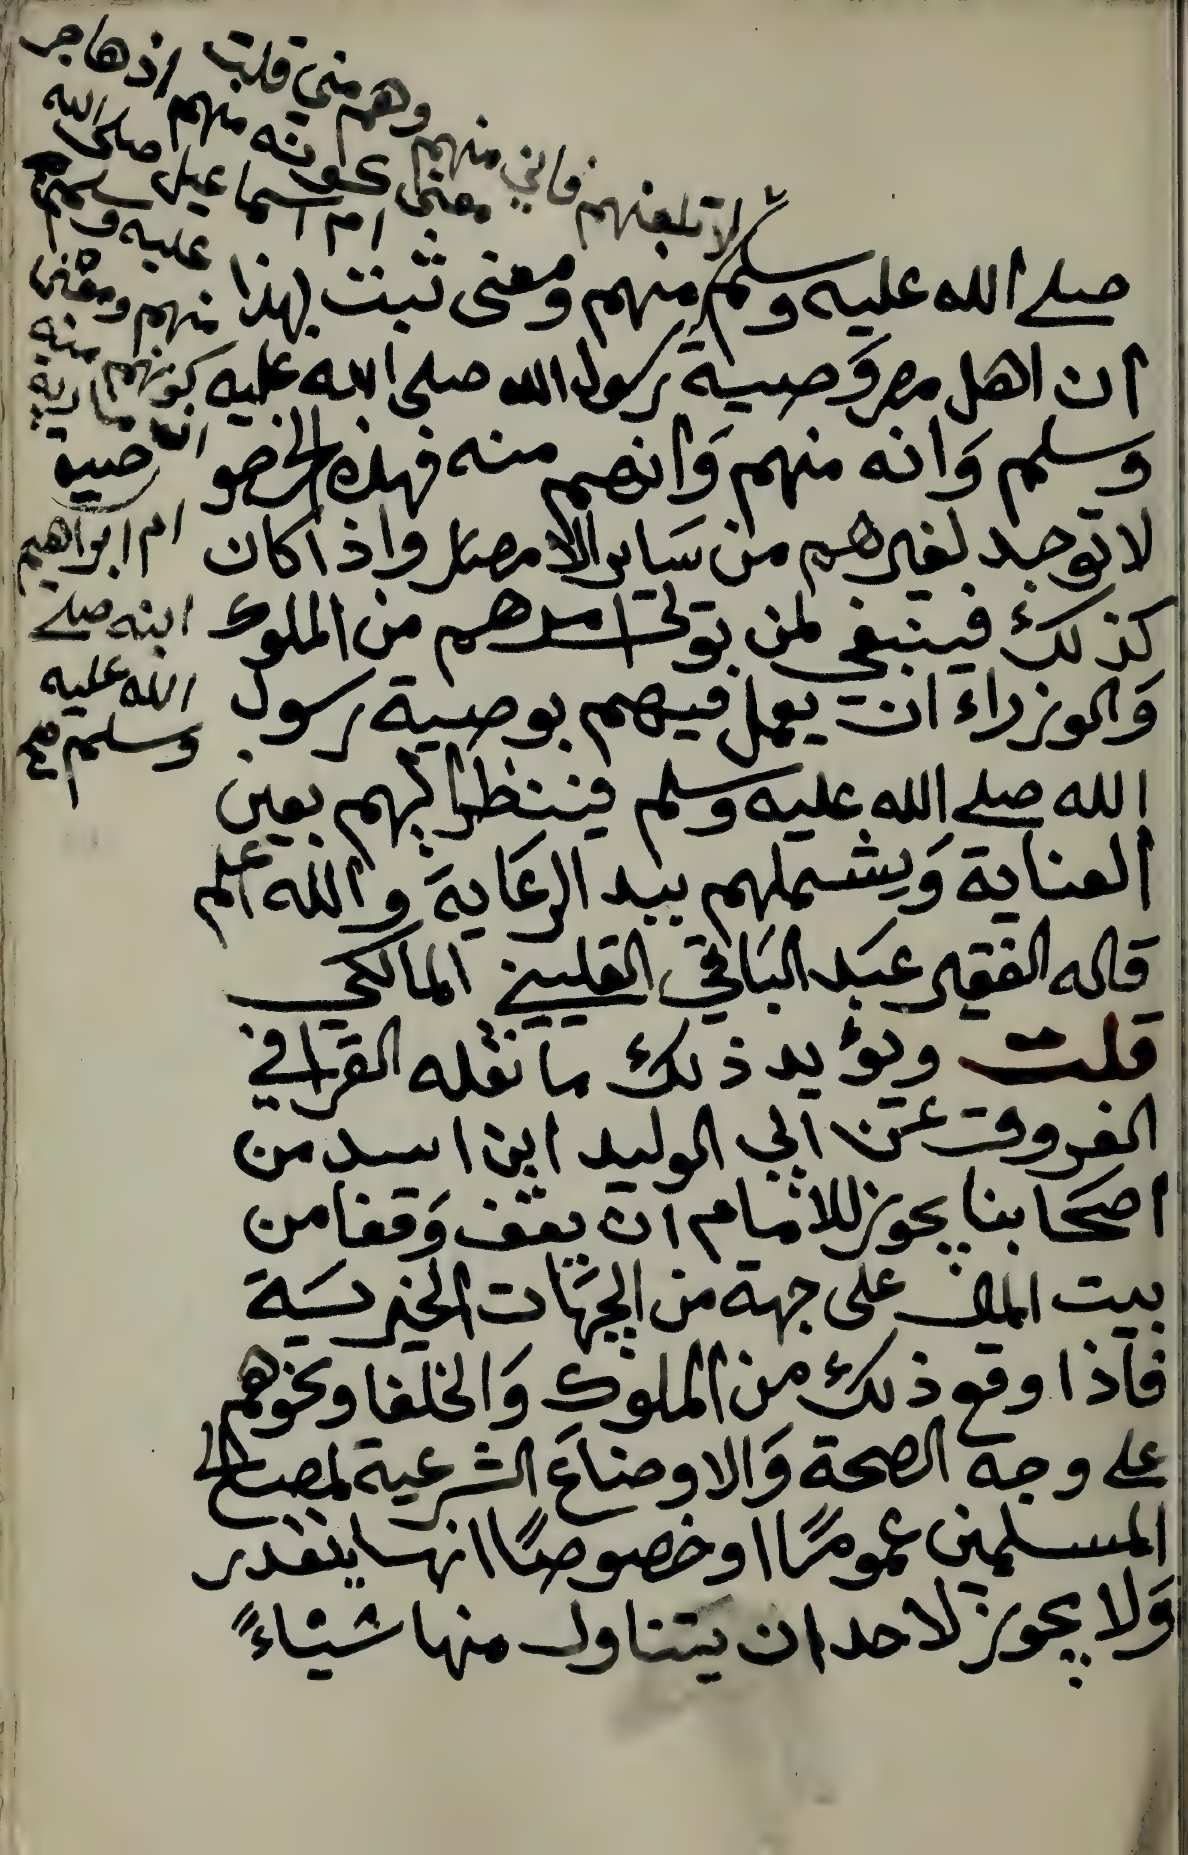 لا تلعنهم فاني منهم وهم مني قلت
معنى كونه منهم ان هاجر
ام اسماعيل صلى الله
عليه وسلم
منهم ومعنى
كونهم منه
ان مارية
ام ابراهيم
ابنه صلى
الله عليه
وسلم
صلى الله عليه وسلم منهم ومعنى ثبت بهذا
ان اهل مصر وَصية رسول الله صلى الله عليه
وسلم وَانه منهم وَانهم منه فهذه الخصو
صية
لا توجد لغيرهم من سَاير الامصار واذا كان
كذلك فينبغي لمن تولى امرهم من الملوك
وَالوزراء ان يعمل فيهم بوصية رسول
الله صلى الله عليه وسلم فينظر اليهم بعين
العناية وَيشملهم بيد الرعَاية والله اعلم
قاله الفقير عبَد البَاقي القليني المالكي
قلت ويؤيد ذلك ما نقله القرافي في
الفروق عَن ابي الوليد ابن اسد من
اصحَابنا يجوز للامام ان يقف وَقفا من
بيت المال على جهة من الجهَات الخيريَة
فاذا وقع ذلك من الملوك وَالخلفا ونحوهم
على وجه الصحة وَالاوضاعَ الشرعية لمصالح
المسلمين عمومًا او خصوصًا انها ينفذ
وَلا يجوز لاحد ان يتناول منها شيْاءً